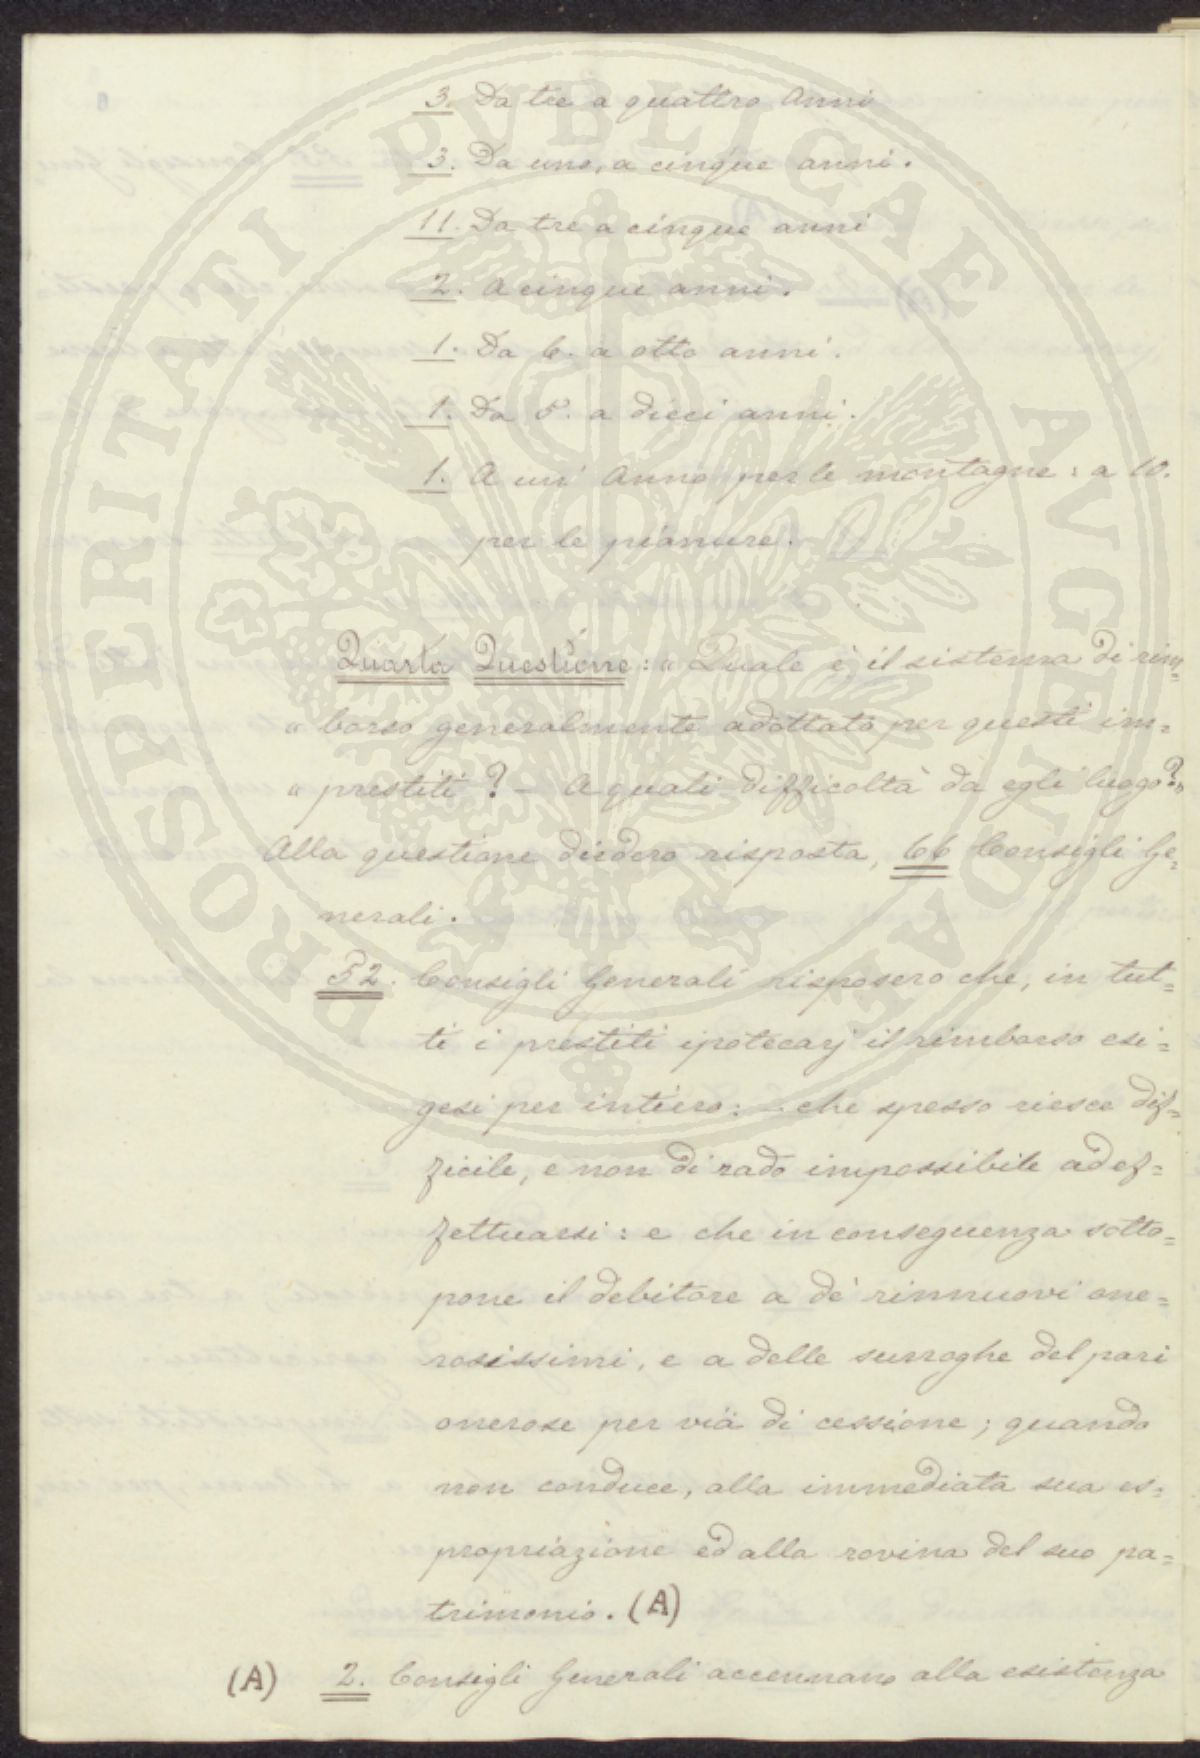 3. Da tre a quattro Anni
3. Da uno, a cinque anni.
11. Da tre a cinque anni
2. A cinque anni.
1. Da 6. a otto anni.
1. Da 5. a dieci anni.
1. A un' Anno per le montagne: a 10.
per le pianure.
Quarta Questione: « Quale è il sistema di rim=
« borso generalmente adottato per questi im=
« prestiti? – A quali difficoltà da egli luogo?»
Alla questione diedero risposta, 66 Consigli Ge=
nerali.
52. Consigli Generali risposero che, in tut=
ti i prestiti ipotecarj il rimborso esi=
gesi per intiero: – che spesso riesce dif=
ficile, e non di rado impossibile ad ef=
fettuarsi: e che in conseguenza sotto=
pone il debitore a de' rinnuovi one=
rosissimi, e a delle surroghe del pari
onerose per via di cessione; quando
non conduce, alla immediata sua es=
propriazione ed alla rovina del suo pa=
trimonio. (A)
(A) 2. Consigli Generali accennano alla esistenza
PROSPERITATI PVBLICAE AVGENDAE